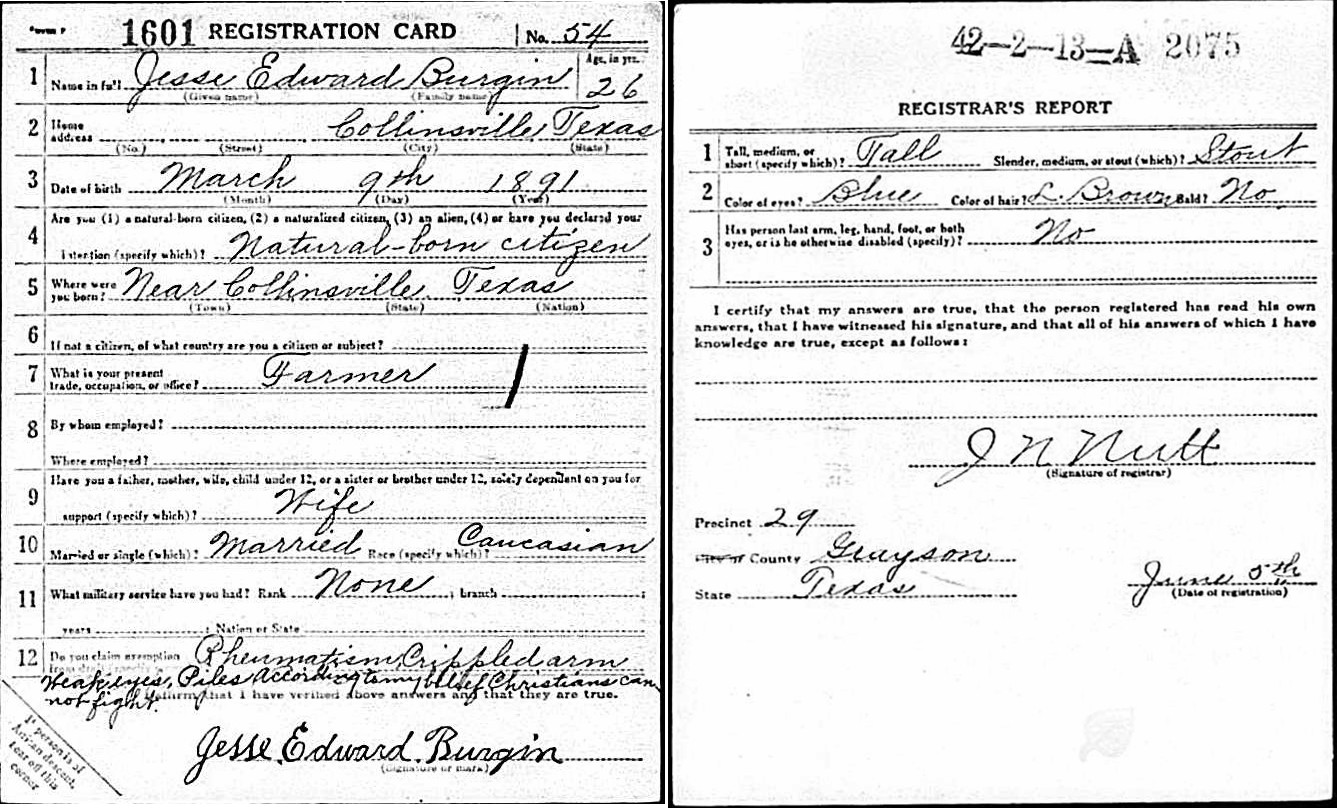 1601 REGISTRATION CARD No. 54
1 Name in full Jesse Edward Burgin Age, in yrs. 26
(Given name) (Family name)
2 Home address Collinsville, Texas
(No.) (Street) (City) (State)
3 Date of birth March 9th 1891
(Month) (Day) (Year)
Are you (1) a natural-born citizen, (2) a naturalized citizen, (3) an alien, (4) or have you declared your
4 intention (specify which)? Natural-born citizen
5 Where were you born? Near Collinsville Texas
(Town) (State) (Nation)
6 If not a citizen, of what country are you a citizen or subject?
7 What is your present trade, occupation, or office? Farmer
8 By whom employed?
Where employed?
9 Have you a father, mother, wife, child under 12, or a sister or brother under 12, solely dependent on you for
support (specify which)? Wife
10 Married or single (which)? Married Race (specify which)? Caucasian
11 What military service have you had? Rank None ; branch ;
years ; Nation or State
12 Do you claim exemption from draft (specify Rheumatism, Crippled arm
Weak eyes, Piles According to my belief Christians can
not fight.
affirm that I have verified above answers and that they are true.
Jesse Edward Burgin
(Signature or mark)
If person is of
African descent,
tear off this
corner
42-2-13-A 2075
REGISTRAR'S REPORT
1 Tall, medium, or short (specify which)? Tall Slender, medium, or stout (which)? Stout
2 Color of eyes? Blue Color of hair? L. Brown Bald? No
3 Has person lost arm, leg, hand, foot, or both eyes, or is he otherwise disabled (specify)? No
I certify that my answers are true, that the person registered has read his own
answers, that I have witnessed his signature, and that all of his answers of which I have
knowledge are true, except as follows:
J N Nutt
(Signature of registrar)
Precinct 29
City or County Grayson
State Texas
June 5th
(Date of registration)